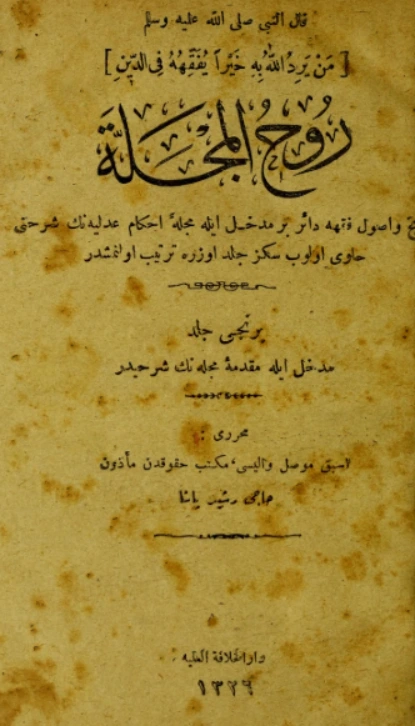 قال النبي صلى الله عليه وسلم
[ مَنْ يَرِدُ اللهُ بِهِ خَيْراً يُفَقِّهْهُ فِى الدِّينِ ]
رُوحُ المجَلَّة
واصول فقهه دائر بر مدخل ايله مجلهٔ احكام عدليه‌نك شرحنى
حاوى اولوب سكز جلد اوزره ترتيب اولنمشدر
برنجى جلد
مدخل ايله مقدمهٔ مجله‌نك شرحيدر
محررى :
اسبق موصل واليسى ، مكتب حقوقدن مأذون
حاجى رشيد پاشا
دار الخلافة العليه
١٣٢٦